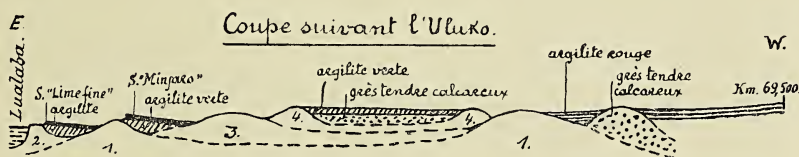 Coupe suivant l'Uluko.
E
W.
Lualaba.
S. "Limefine"
argilite
S. "Minsaro"
argilite verte
argilite verte
grès tendre calcareux
argilite rouge
grès tendre
calcareux
Km. 69,500.
2.
1.
3.
4.
4.
1.